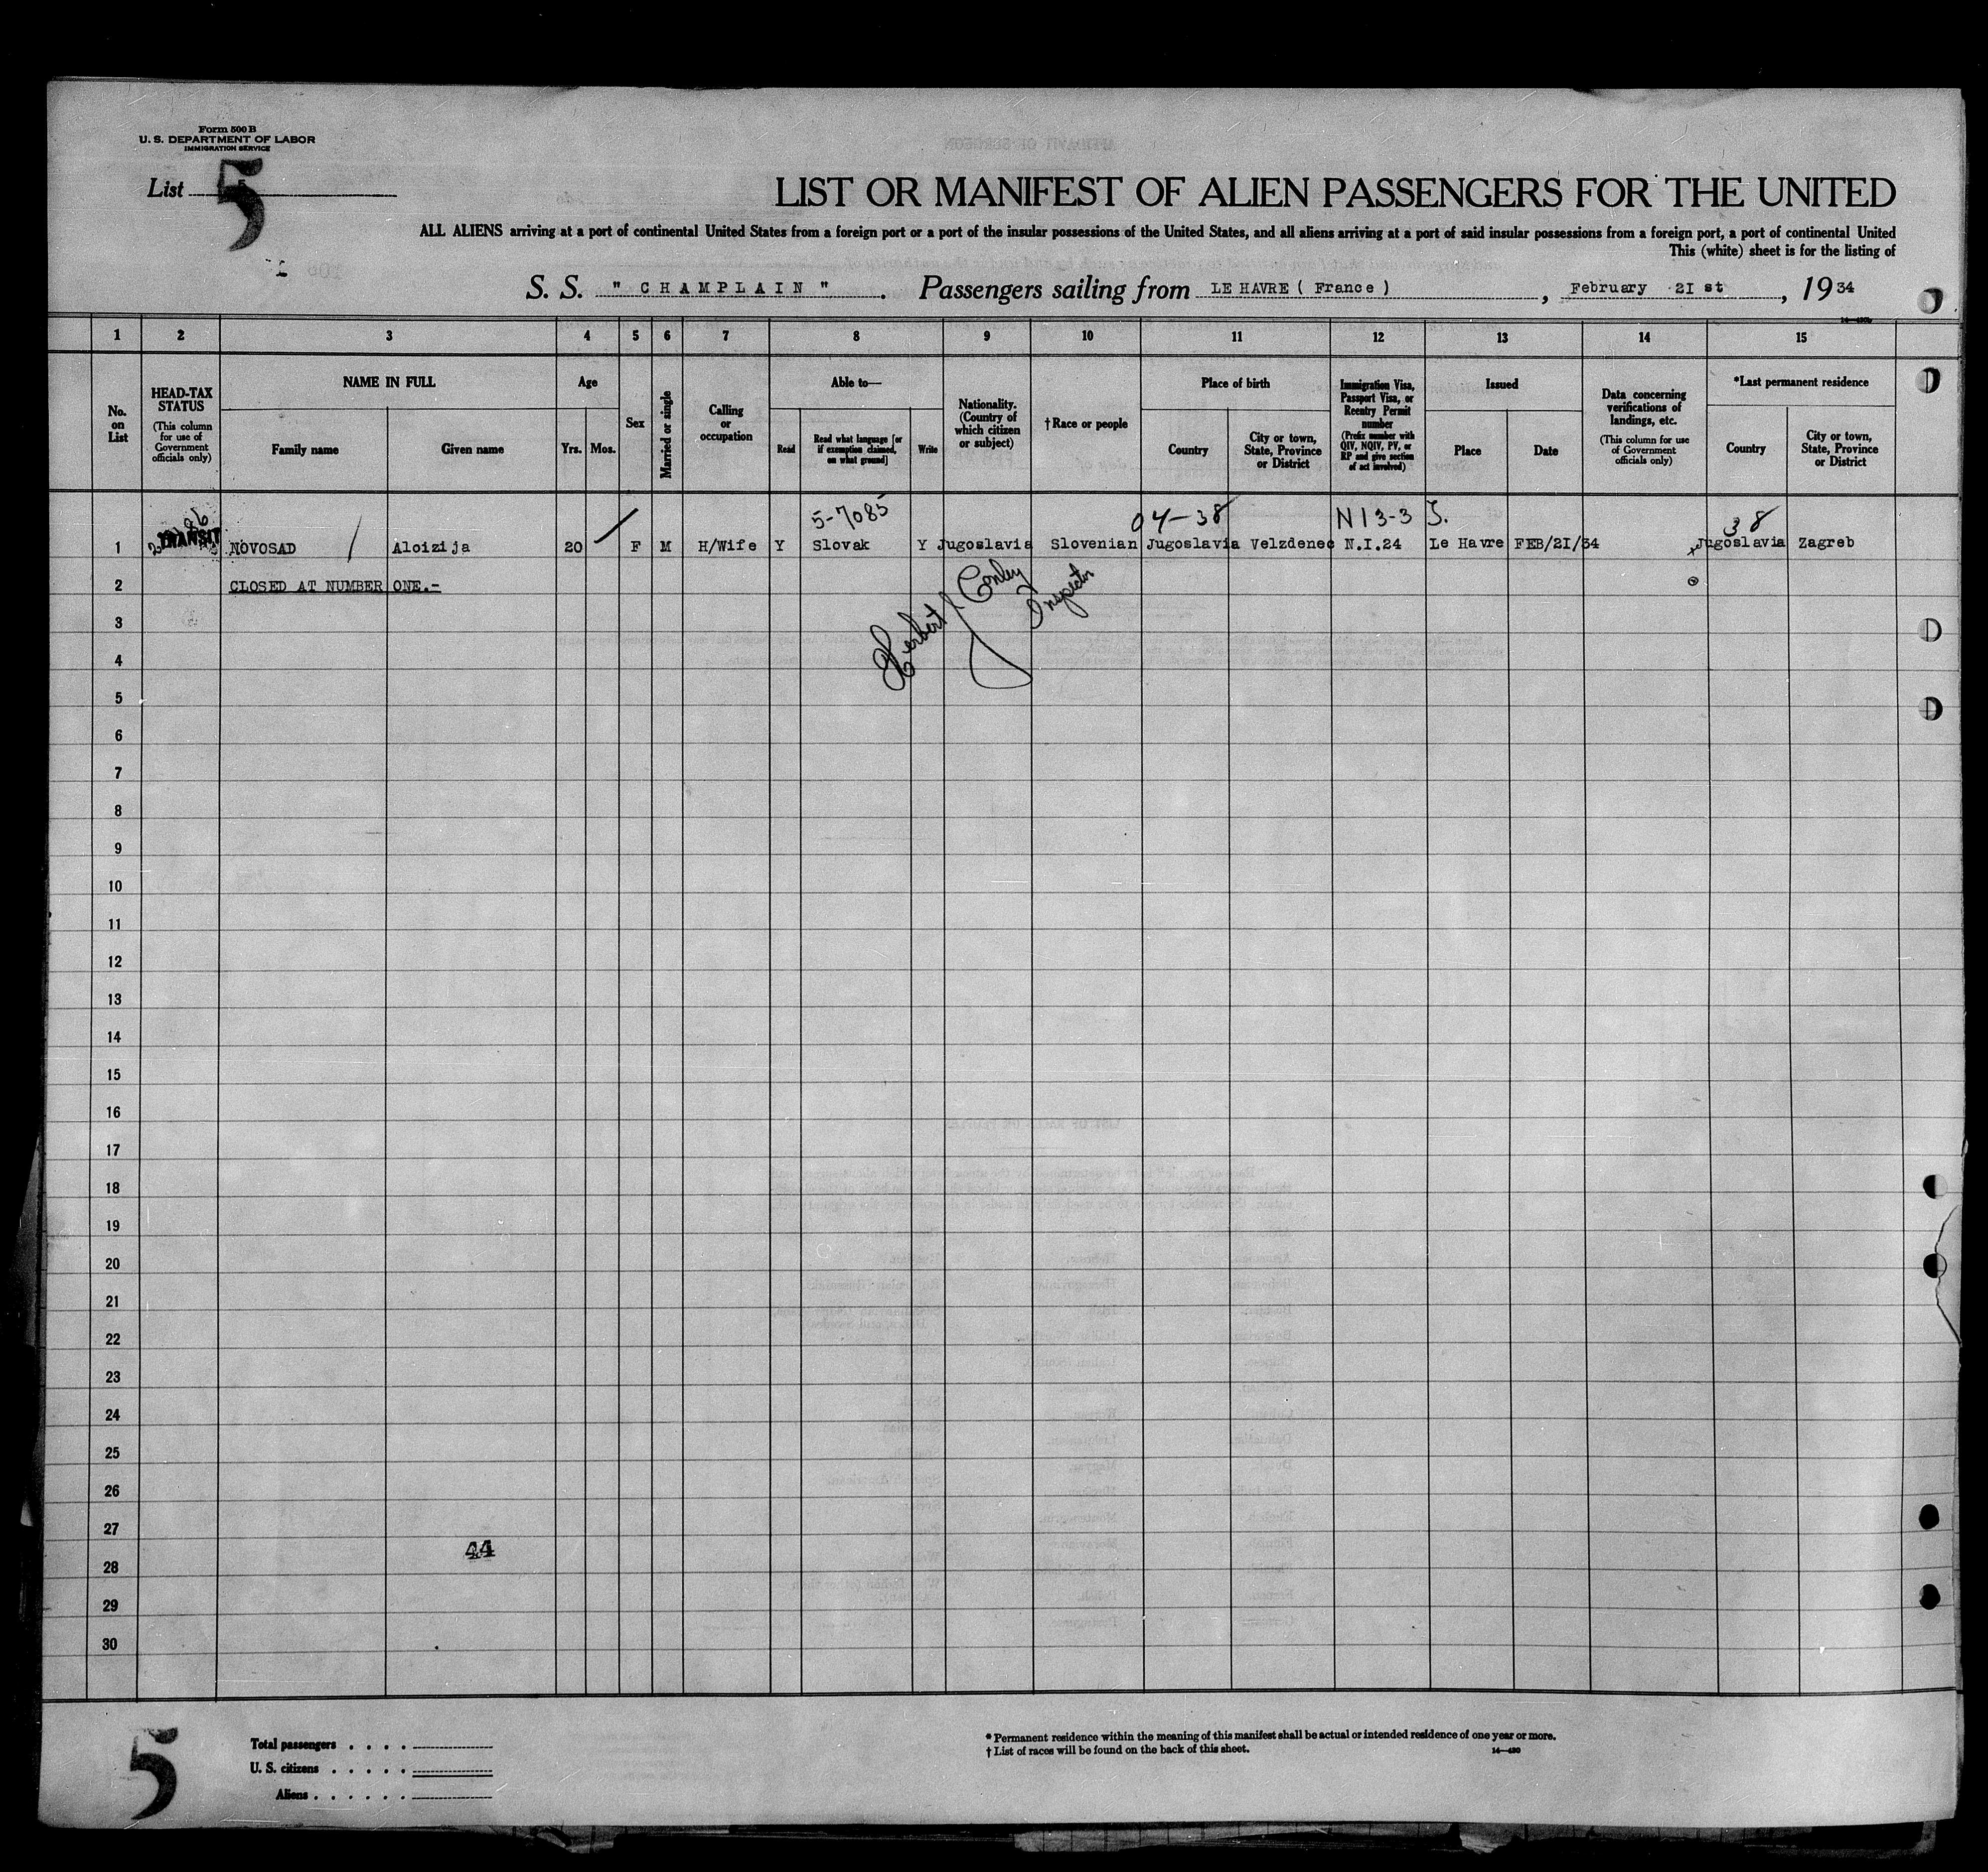 Form 500 B
U. S. DEPARTMENT OF LABOR
IMMIGRATION SERVICE
List 5
5
LIST OR MANIFEST OF ALIEN PASSENGERS FOR THE UNITED
ALL ALIENS arriving at a port of continental United States from a foreign port or a port of the insular possessions of the United States, and all aliens arriving at a port of said insular possessions from a foreign port, a port of continental United
This (white) sheet is for the listing of
S. S. " CHAMPLAIN ". Passengers sailing from LE HAVRE ( France ) , February 2I st , 1934
1 2 3 4 5 6 7 8 9 10 11 12 13 14 15
No. on List
HEAD-TAX STATUS
(This column for use of Government officials only)
NAME IN FULL
Family name
Given name
Age
Yrs. Mos.
Sex
Married or single
Calling or occupation
Able to—
Read
Read what language [or if exemption claimed, on what ground]
Write
Nationality. (Country of which citizen or subject)
†Race or people
Place of birth
Country
City or town, State, Province or District
Immigration Visa, Passport Visa, or Reentry Permit number
(Prefix number with QIV, NQIV, PV, or RP and give section of act involved)
Issued
Place
Date
Data concerning verifications of landings, etc.
(This column for use of Government officials only)
*Last permanent residence
Country
City or town, State, Province or District
5-7085 04-38 N13-3 38
TRANSIT
1 NOVOSAD Aloizija 20 F M H/Wife Y Slovak Y Jugoslavia Slovenian Jugoslavia Velzdenec N.I.24 Le Havre FEB/2I/34 Jugoslavia Zagreb
2 CLOSED AT NUMBER ONE.-
Herbert Conley
Inspector
3
4
5
6
7
8
9
10
11
12
13
14
15
16
17
18
19
20
21
22
23
24
25
26
27
44
28
29
30
5
Total passengers . . . .
U. S. citizens . . . . .
Aliens . . . . . .
* Permanent residence within the meaning of this manifest shall be actual or intended residence of one year or more.
† List of races will be found on the back of this sheet.
14—430